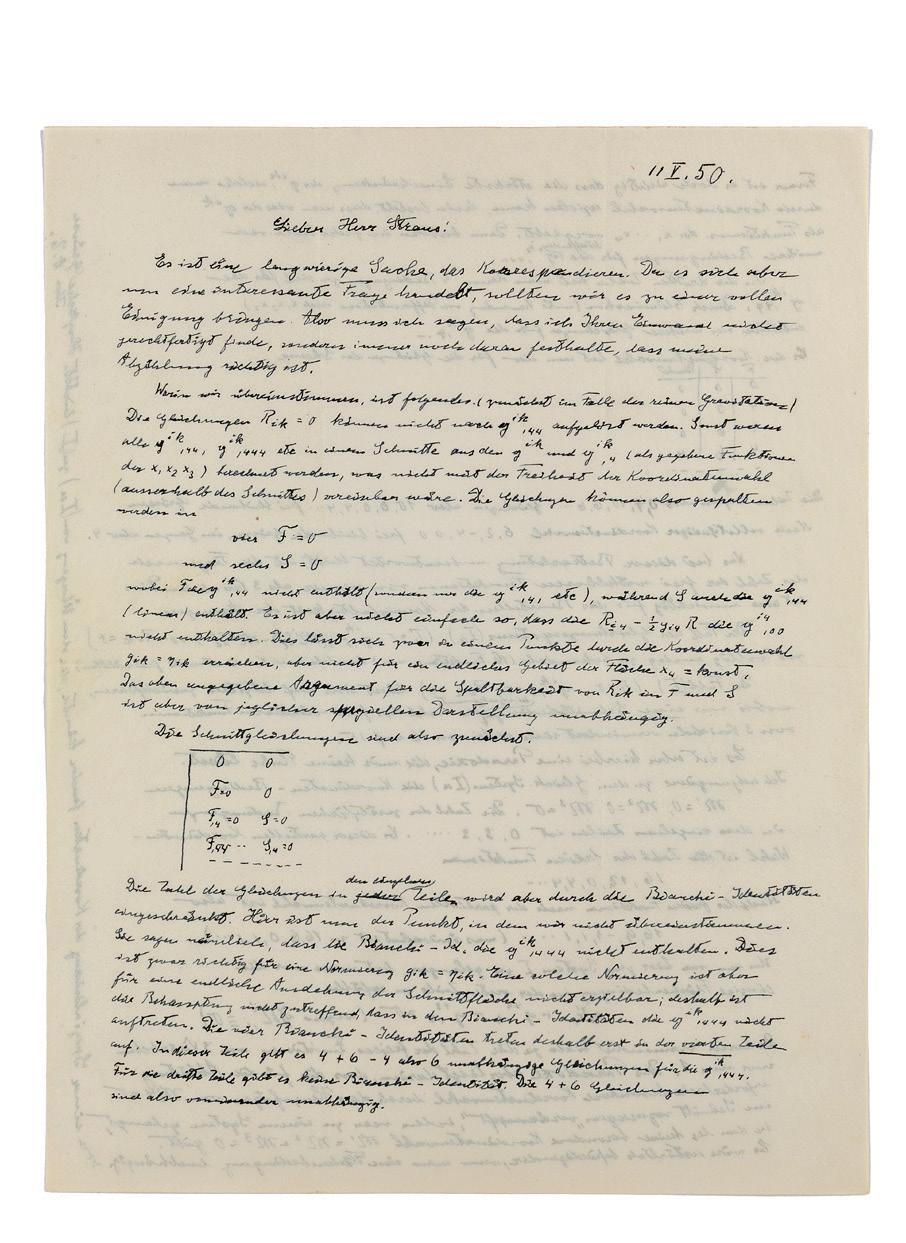 11 V. 50.
Lieber Herr Straus!
Es ist eine langwierige Sache, das Korrespondieren. Da es sich aber
um eine interessante Frage handelt, sollten wir es zu einer vollen
Einigung bringen. Also muss ich sagen, dass ich Ihren Einwand nicht
gerechtfertigt finde, sondern immer noch daran festhalte, dass meine
Abzählung richtig ist.
Worin wir übereinstimmen, ist folgendes. (zunächst im Falle der reinen Gravitation)
Die Gleichungen R_ik = 0 können nicht nach g^ik_,44 aufgelöst werden. Sonst wären
alle g^ik_,44, g^ik_,444 etc in einem Schnitte aus den g^ik und g^ik_,4 (als gegebene Funktionen
der x₁ x₂ x₃) berechnet werden, was nicht mit der Freiheit der Koordinatenwahl
(ausserhalb des Schnittes) vereinbar wäre. Die Gleichungen können also gespalten
werden in
vier F = 0
und sechs S = 0
wobei F die g^ik_,44 nicht enthält (sondern nur die g^ik_,4, etc), während S auch die g^ik_,44
(linear) enthält. Es ist aber nicht einfach so, dass die R_i4 − ½ g_i4 R die
nicht enthalten. Dies lässt sich zwar in einem Punkte durch die Koordinatenwahl
g_ik = η_ik erreichen, aber nicht für ein endliches Gebiet der Fläche x₄ = konst.
Das oben angegebene Argument für die Spaltbarkeit von R_ik in F und S
ist aber von jeglicher speziellen Darstellung unabhängig.
Die Schnittgleichungen sind also zunächst.
0 0
F=0 0
F,4=0 S=0
F,44 -- S,4=0
den einzelnen
Die Zahl der Gleichungen in jeder Zeilen wird aber durch die Bianchi-Identitäten
eingeschränkt. Hier ist nun der Punkt, in dem wir nicht übereinstimmen.
Sie sagen nämlich, dass die Bianchi-Id. die g^ik_,444 nicht enthalten. Dies
ist zwar richtig für eine Normierung g_ik = η_ik. Eine solche Normierung ist aber
für eine endliche Ausdehnung der Schnittfläche nicht erzielbar; deshalb ist
die Behauptung nicht zutreffend, dass in den Bianchi-Identitäten die g^ik_,444 nicht
auftreten. Die vier Bianchi-Identitäten treten deshalb erst in der vierten Zeile
auf. In dieser Zeile gibt es 4 + 6 − 4 also 6 unabhängige Gleichungen für die g^ik_,444.
Für die dritte Zeile gibt es keine Bianchi-Identität. Die 4 + 6 Gleichungen
sind also voneinander unabhängig.